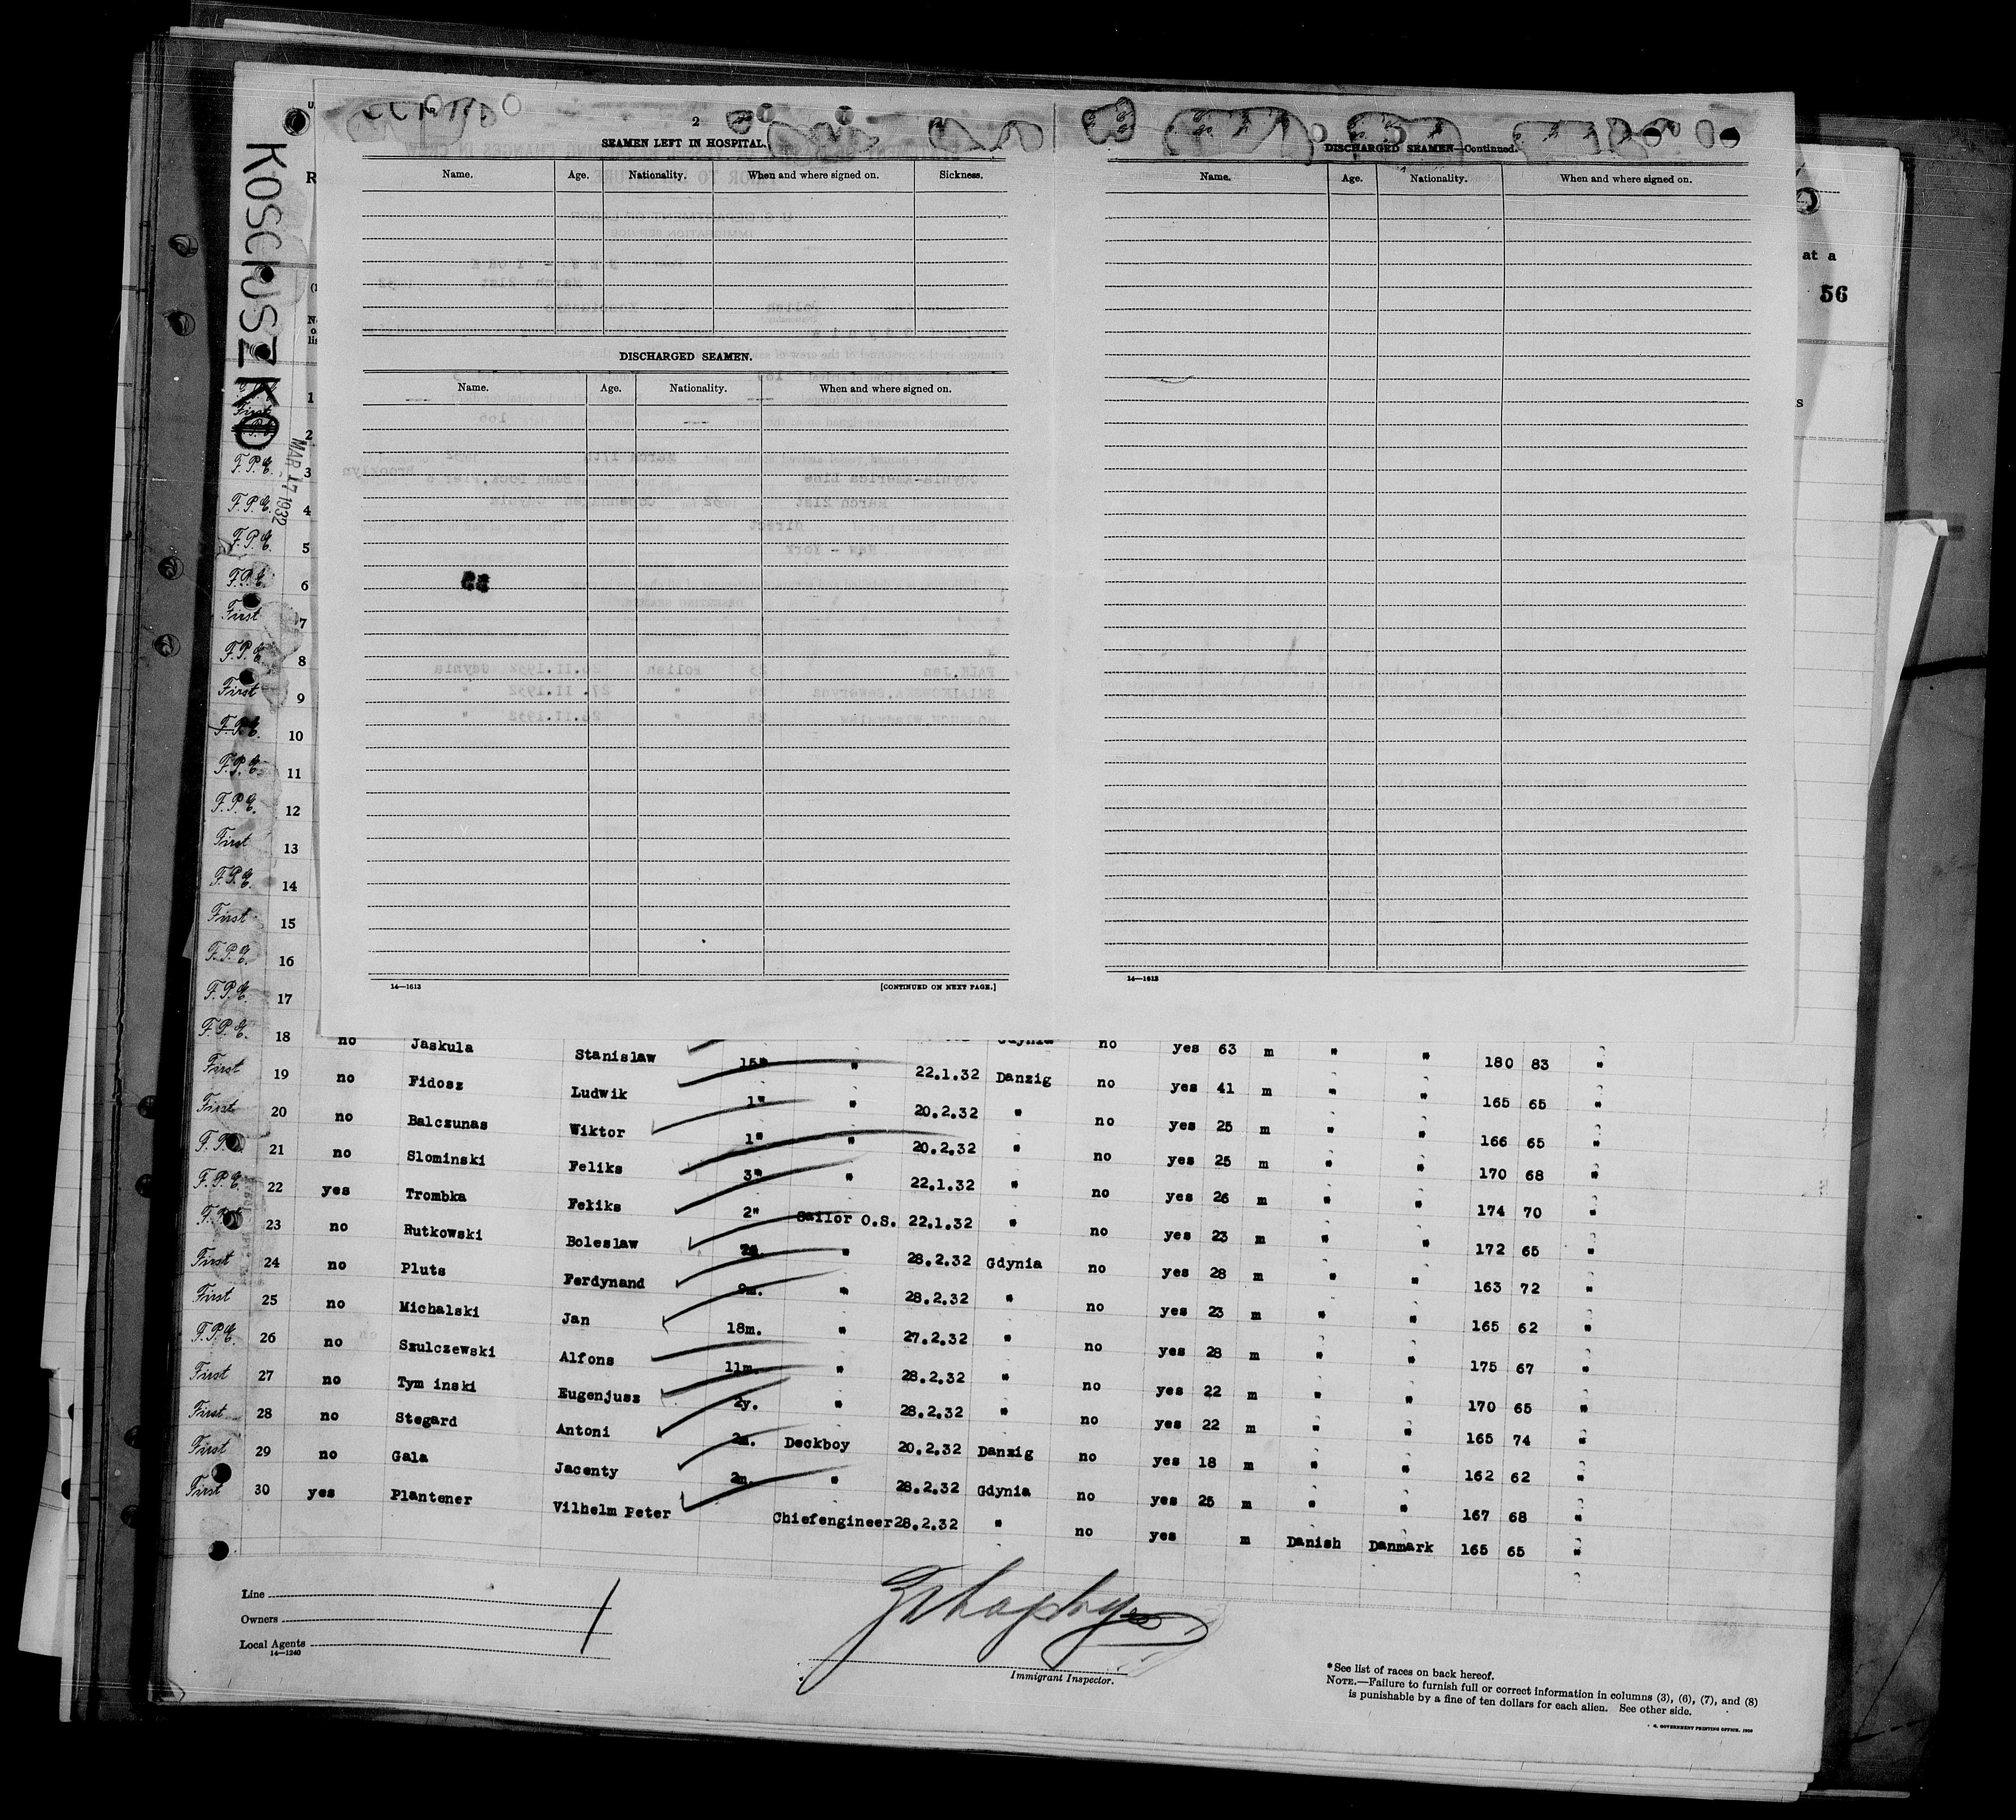 KOSCIUSZKO
MAR 17 1932
2
SEAMEN LEFT IN HOSPITAL.
Name. Age. Nationality. When and where signed on. Sickness.
DISCHARGED SEAMEN.
Name. Age. Nationality. When and where signed on.
14—1613 [CONTINUED ON NEXT PAGE.]
DISCHARGED SEAMEN—Continued.
Name. Age. Nationality. When and where signed on.
14—1613
at a
56
1
First
2
F.P.E. 3
F.P.E. 4
F.P.E. 5
F.P.E. 6
First 7
F.P.E. 8
First 9
F.P.E. 10
F.P.E. 11
F.P.E. 12
First 13
F.P.E. 14
First 15
F.P.E. 16
F.P.E. 17 Gdynia no yes 63 m " " 180 83 "
F.P.E. 18 no Jaskula Stanislaw 15" " 22.1.32 Danzig no yes 41 m " " 165 65 "
First 19 no Fidosz Ludwik 1" " 20.2.32 " no yes 25 m " " 166 65 "
First 20 no Balczunas Wiktor 1" " 20.2.32 " no yes 25 m " " 170 68 "
F.P.E. 21 no Slominski Feliks 3" " 22.1.32 " no yes 26 m " " 174 70 "
F.P.E. 22 yes Trombka Feliks 2" Sailor O.S. 22.1.32 " no yes 23 m " " 172 65 "
F.P.E. 23 no Rutkowski Boleslaw " 28.2.32 Gdynia no yes 28 m " " 163 72 "
First 24 no Pluts Ferdynand 9m. " 28.2.32 " no yes 23 m " " 165 62 "
First 25 no Michalski Jan 18m. " 27.2.32 " no yes 28 m " " 175 67 "
F.P.E. 26 no Szulczewski Alfons 11m. " 28.2.32 " no yes 22 m " " 170 65 "
First 27 no Tym inski Eugenjusz 2y. " 28.2.32 " no yes 22 m " " 165 74 "
First 28 no Stegard Antoni 2m. Deckboy 20.2.32 Danzig no yes 18 m " " 162 62 "
First 29 no Gala Jacenty 2m. " 28.2.32 Gdynia no yes 25 m " " 167 68 "
First 30 yes Plantener Vilhelm Peter Chiefengineer 28.2.32 " no yes m Danish Danmark 165 65 "
Line
Owners
Local Agents
14—1240
Immigrant Inspector.
*See list of races on back hereof.
NOTE.—Failure to furnish full or correct information in columns (3), (6), (7), and (8)
is punishable by a fine of ten dollars for each alien. See other side.
GOVERNMENT PRINTING OFFICE